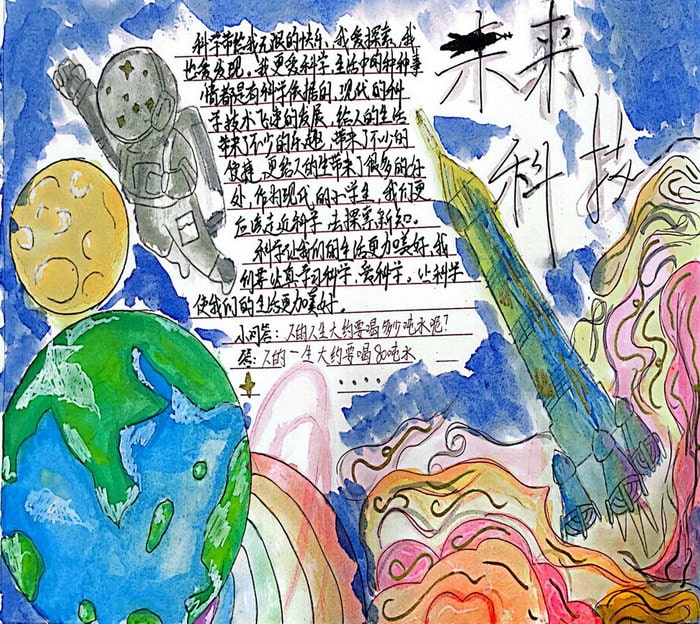 未来
科技
科学带给我无限的快乐，我爱探索，我
也爱发现。我更爱科学，生活中的种种事
情都是有科学依据的，现代的科
学技术飞速的发展，给人的生活
带来了不少的乐趣，带来了不少的
便捷，更给人的生带来了很多的好
处，作为现代的小学生，我们更
应该走近科学，去探索新知。
科学让我们的生活更加美好，我
们要认真学习科学，爱科学。让科学
使我们的生活更加美好。
小问答：人的人生大约要喝多少吨水呢？
答：人的一生大约要喝80吨水